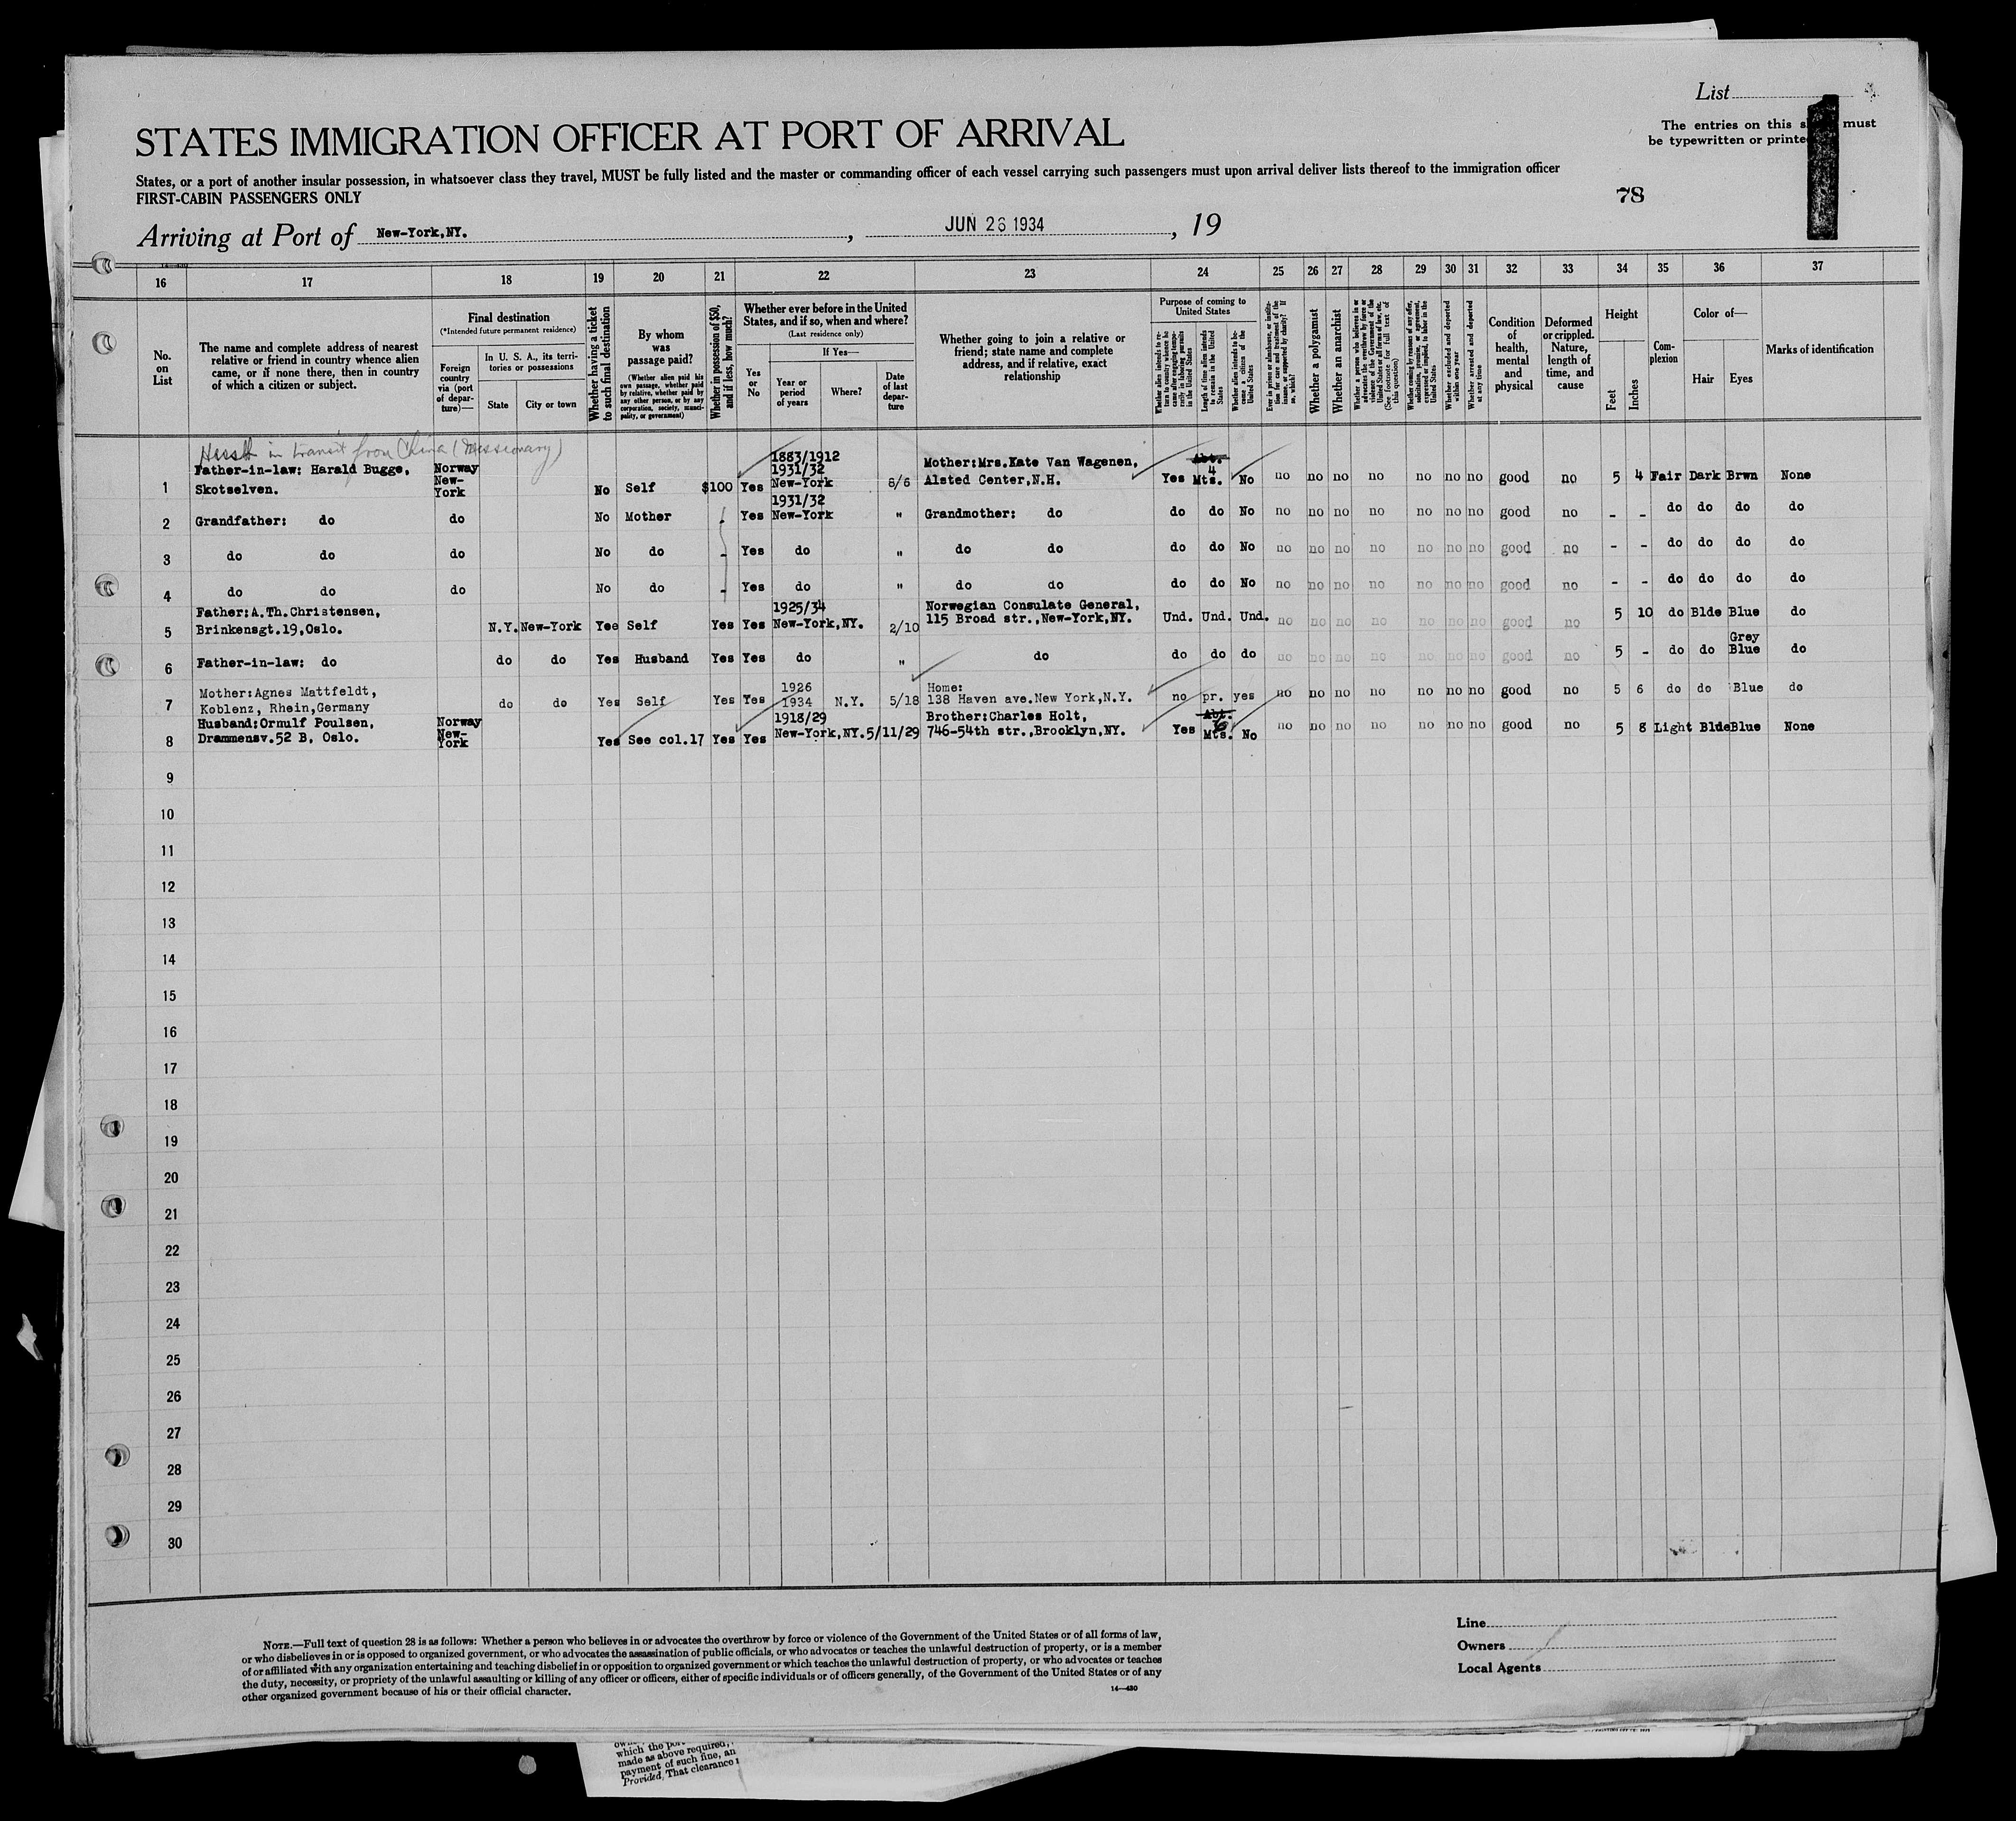 List
STATES IMMIGRATION OFFICER AT PORT OF ARRIVAL
The entries on this must
be typewritten or printe
States, or a port of another insular possession, in whatsoever class they travel, MUST be fully listed and the master or commanding officer of each vessel carrying such passengers must upon arrival deliver lists thereof to the immigration officer
FIRST-CABIN PASSENGERS ONLY
78
Arriving at Port of New-York,NY. , JUN 26 1934 , 19
16 17 18 19 20 21 22 23 24 25 26 27 28 29 30 31 32 33 34 35 36 37
No. on List
The name and complete address of nearest relative or friend in country whence alien came, or if none there, then in country of which a citizen or subject.
Final destination
(*Intended future permanent residence)
Foreign country via (port of departure)—
In U. S. A., its territories or possessions
State City or town
Whether having a ticket to such final destination
By whom was passage paid?
(Whether alien paid his own passage, whether paid by relative, whether paid by any other person, or by any corporation, society, municipality, or government)
Whether in possession of $50, and if less, how much?
Whether ever before in the United States, and if so, when and where?
(Last residence only)
Yes or No
If Yes—
Year or period of years Where? Date of last departure
Whether going to join a relative or friend; state name and complete address, and if relative, exact relationship
Purpose of coming to United States
Whether alien intends to return to country whence he came after engaging temporarily in laboring pursuits in the United States
Length of time alien intends to remain in the United States
Whether alien intends to become a citizen of the United States
Ever in prison or almshouse, or institution for care and treatment of the insane, or supported by charity? If so, which?
Whether a polygamist
Whether an anarchist
Whether a person who believes in or advocates the overthrow by force or violence of the Government of the United States or all forms of law, etc. (See footnote for full text of this question)
Whether coming by reasons of any offer, solicitation, promise, or agreement, expressed or implied, to labor in the United States
Whether excluded and deported within one year
Whether arrested and deported at any time
Condition of health, mental and physical
Deformed or crippled. Nature, length of time, and cause
Height
Feet Inches
Complexion
Color of—
Hair Eyes
Marks of identification
in transit from China (Missionary)
1 Father-in-law: Harald Bugge, Skotselven. Norway New-York No Self $100 Yes 1883/1912 1931/32 New-York 6/6 Mother:Mrs.Kate Van Wagenen, Alsted Center,N.H. Yes Abt. 4 Mts. No no no no no no no no good no 5 4 Fair Dark Brwn None
2 Grandfather: do do No Mother - Yes 1931/32 New-York " Grandmother: do do do No no no no no no no no good no - - do do do do
3 do do do No do - Yes do " do do do do No no no no no no no no good no - - do do do do
4 do do do No do - Yes do " do do do do No no no no no no no no good no - - do do do do
5 Father:A.Th.Christensen, Brinkensgt.19,Oslo. N.Y. New-York Yes Self Yes Yes 1925/34 New-York,NY. 2/10 Norwegian Consulate General, 115 Broad str.,New-York,NY. Und. Und. Und. no no no no no no no good no 5 10 do Blde Blue do
6 Father-in-law: do do do Yes Husband Yes Yes do " do do do do no no no no no no no good no 5 - do do Grey Blue do
7 Mother:Agnes Mattfeldt, Koblenz, Rhein,Germany do do Yes Self Yes Yes 1926 1934 N.Y. 5/18 Home: 138 Haven ave.New York,N.Y. no pr. yes no no no no no no no good no 5 6 do do Blue do
8 Husband:Ornulf Poulsen, Drammensv.52 B, Oslo. Norway New-York Yes See col.17 Yes Yes 1918/29 New-York,NY.5/11/29 Brother:Charles Holt, 746-54th str.,Brooklyn,NY. Yes Abt. 6 Mts. No no no no no no no no good no 5 8 Light Blde Blue None
9
10
11
12
13
14
15
16
17
18
19
20
21
22
23
24
25
26
27
28
29
30
NOTE.—Full text of question 28 is as follows: Whether a person who believes in or advocates the overthrow by force or violence of the Government of the United States or of all forms of law,
or who disbelieves in or is opposed to organized government, or who advocates the assassination of public officials, or who advocates or teaches the unlawful destruction of property, or is a member
of or affiliated with any organization entertaining and teaching disbelief in or opposition to organized government or which teaches the unlawful destruction of property, or who advocates or teaches
the duty, necessity, or propriety of the unlawful assaulting or killing of any officer or officers, either of specific individuals or of officers generally, of the Government of the United States or of any
other organized government because of his or their official character.
14—430
Line
Owners
Local Agents
which the por
made as above required,
payment of such fine, an
Provided, That clearance